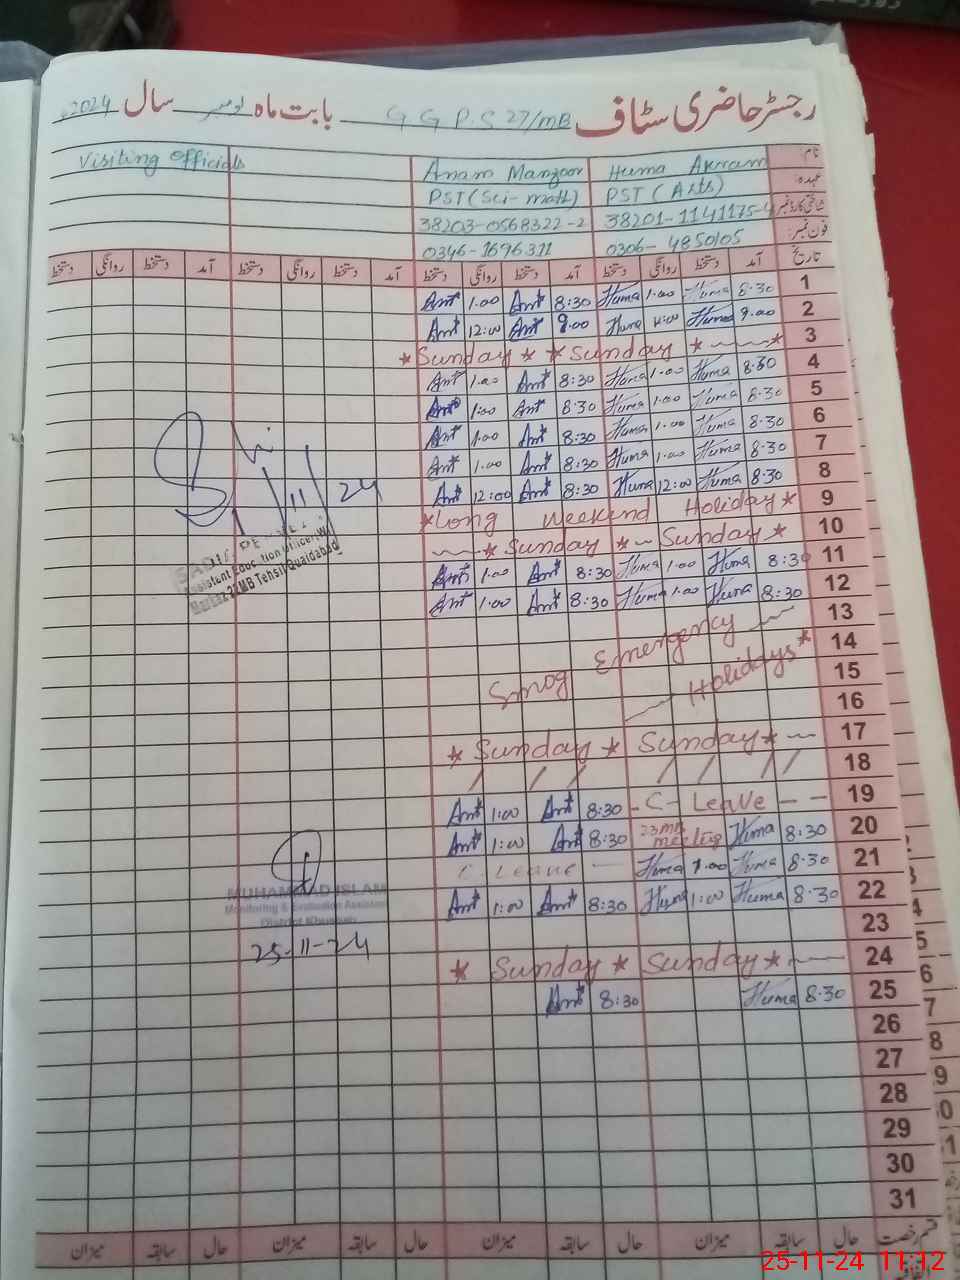 رجسٹر حاضری سٹاف G G P.S 27/MB بابت ماہ نومبر سال 2024ء
نام: Huma Akram Anam Manzoor Visiting officials
عہدہ: PST (Arts) PST (Sci-math)
شناختی کارڈ نمبر 38201-1141175-4 38203-0568322-2
فون نمبر: 0306-4850105 0346-1696311
تاریخ آمد دستخط روانگی دستخط آمد دستخط روانگی دستخط آمد دستخط روانگی دستخط آمد دستخط روانگی دستخط
1 8:30 Huma 1.00 Huma 8:30 Amt 1.00 Amt
2 9.00 Huma Huma 9.00 Amt 12:00 Amt
3 * Sunday * * Sunday * ~ *
4 8:30 Huma 1.00 Huma 8:30 Amt 1.00 Amt
5 8.30 Huma 1.00 Huma 8.30 Amt 1:00 Amt
6 8:30 Huma 1.00 Huma 8:30 Amt 1.00 Amt
7 8:30 Huma 1.00 Huma 8:30 Amt 1.00 Amt
8 8:30 Huma 12:00 Huma 8:30 Amt 12:00 Amt
9 * Long weekend Holiday *
10 ~ * Sunday * ~ Sunday *
11 8:30 Huma 1.00 Huma 8:30 Amt 1.00 Amt
12 8:30 Huma 1.00 Huma 8:30 Amt 1.00 Amt
13
14 Smog Emergency
15 Holidays *
16
17 * Sunday * Sunday * ~
18 / / / / / / /
19 - C - Leave - - 8:30 Amt 1:00 Amt
20 8:30 Huma meeting 8:30 Amt 1:00 Amt
21 8:30 Huma 1.00 Huma C. Leave -
22 8:30 Huma 1:00 Huma 8:30 Amt 1:00 Amt
23
24 * Sunday * Sunday * ~
25 8.30 Huma 8:30 Amt
26
27
28
29
30
31
11 24
Assistant Education Officer (W)
Markaz 27MB Tehsil Quaidabad
MUHAMMAD ISLAM
Monitoring & Evaluation Assistant
District Khushab
25-11-24
قسم رخصت حال سابقہ میزان حال سابقہ میزان حال سابقہ میزان حال سابقہ میزان
25-11-24 11:12